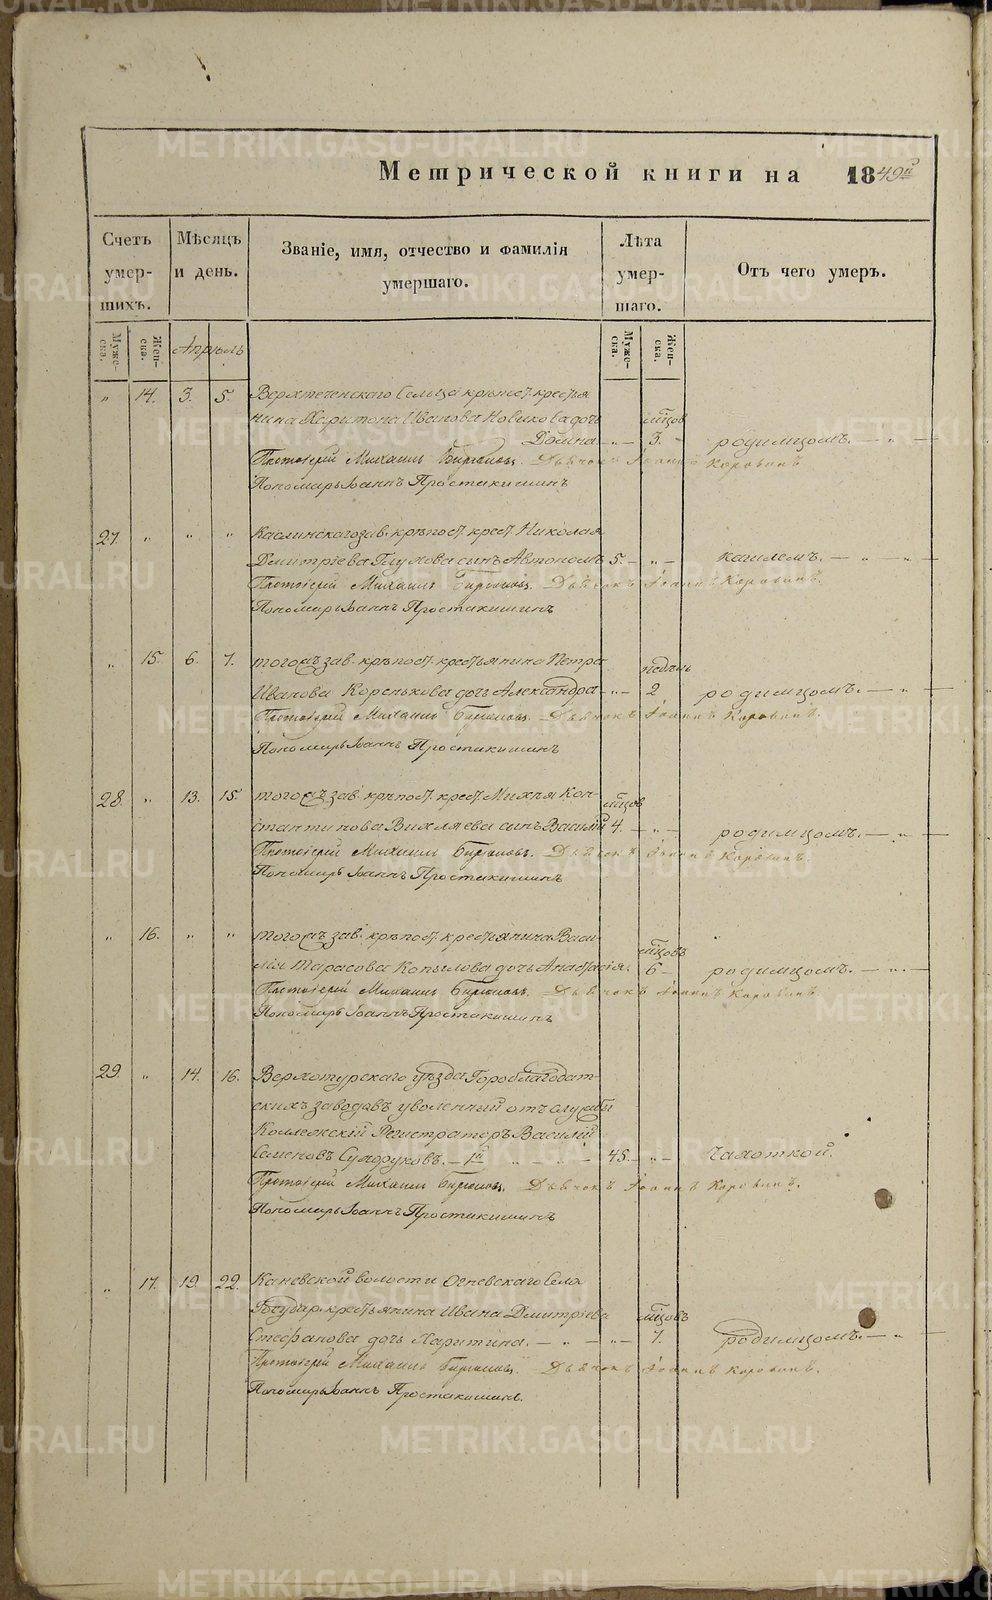 Метрической книги на 1849й
Счетъ умершихъ. Мѣсяцъ и день. Званіе, имя, отчество и фамилія умершаго. Лѣта умершаго. Отъ чего умеръ.
Мужеска. Женска. Апрѣль Мужеска. Женска.
" 14. 3. 5. Верхтеченскаго Сельца крѣпост. крестья
нина Харитона Иванова Новикова дочь мѣсцов
Домна — " — 3. — родимцомъ. — " —
Протоіерей Михаилъ Бирюковъ. Дьячокъ Іоаннъ Коровинъ
Пономарь Іоаннъ Простакишинъ
27 " " " Каслинскаго зав. крѣпост. крест. Николая
Дмитріева Глухова сынъ Автономъ 5. — " — кашлемъ. — " —
Протоіерей Михаилъ Бирюковъ. Дьячокъ Іоаннъ Коровинъ.
Пономарь Іоаннъ Простакишинъ
" 15. 6. 7. тогожъ зав. крѣпост. крестьянина Петра недѣль
Иванова Коренькова дочь Александра — " — 2 родимцомъ. — " —
Протоіерей Михаилъ Бирюковъ. Дьячокъ Іоаннъ Коровинъ.
Пономарь Іоаннъ Простакишинъ
28. " 13. 15. тогожъ зав. крѣпост. крест. Михея Кон-
стантинова Вихляева сынъ Василій мѣсцов 4. — " — родимцомъ. — " —
Протоіерей Михаилъ Бирюковъ. Дьячокъ Іоаннъ Коровинъ.
Пономарь Іоаннъ Простакишинъ
" 16. " " тогожъ зав. крѣпост. крестьянина Васи-
лія Тарасова Копылова дочь Анастасія. мѣсцовъ 6 — родимцомъ. — " —
Протоіерей Михаилъ Бирюковъ. Дьячокъ Іоаннъ Коровинъ.
Пономарь Іоаннъ Простакишинъ
29. " 14. 16. Верхотурскаго уѣзда Гороблагодат-
скихъ заводавъ уволенный отъ службы
Коллежскій Регистраторъ Василій
Семеновъ Сумаруковъ. — 1й " — — 45. — " — Чахоткой.
Протоіерей Михаилъ Бирюковъ. Дьячокъ Іоаннъ Коровинъ.
Пономарь Іоаннъ Простакишинъ
" 17. 19. 22. Каневской волости Огневскаго Села
Государ. крестьянина Ивана Дмитріева мѣсцовъ
Стефанова дочь Харитина. — " — — " — 7. родимцомъ. — " —
Протоіерей Михаилъ Бирюковъ. Дьячокъ Іоаннъ Коровинъ.
Пономарь Іоаннъ Простакишинъ.
METRIKI.GASO-URAL.RU